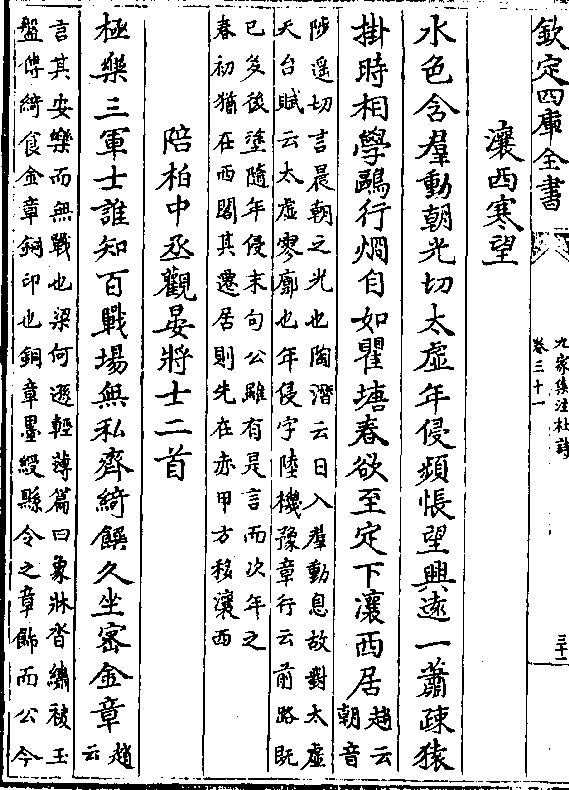 欽定四庫全書
九家集注杜詩
卷三十一
三十二
瀼西寒望
水色含羣動朝光切太虛年侵頻悵望興遠一蕭疎猿
掛時相學鷗行炯自如瞿塘春欲至定卜瀼西居趙云
朝音
陟遥切言晨朝之光也陶潛云日入羣動息故對太虛
天台賦云太虛寥廓也年侵字陸機豫章行云前路既
已多後塗隨年侵末句公雖有是言而次年之
春初猶在西閣其遷居則先在赤甲方移瀼西
陪柏中丞觀晏將士二首
極樂三軍士誰知百戰場無私齊綺饌久坐密金章趙
云
言其安樂而無戰也梁何遜輕薄篇曰象牀沓繡被玉
盤傳綺食金章銅印也銅章墨綬縣令之章飾而公今